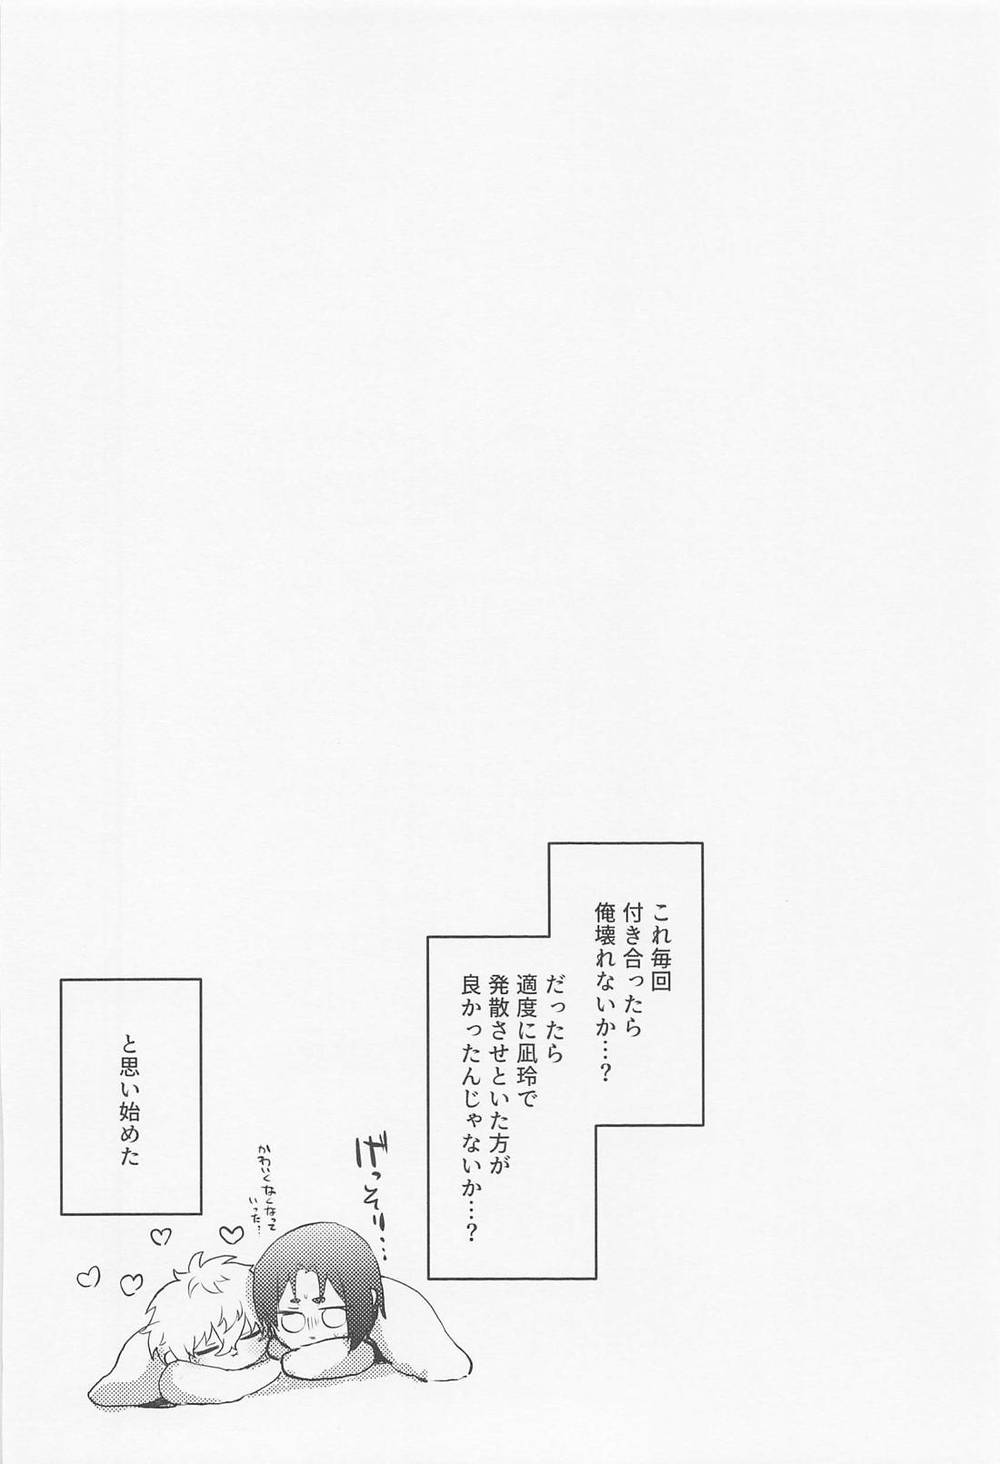 これ毎回
付き合ったら
俺壊れないか…?
だったら
適度に凪玲で
発散させといた方が
良かったんじゃないか…?
げっそり…
かわいくなくなって
いった…
と思い始めた